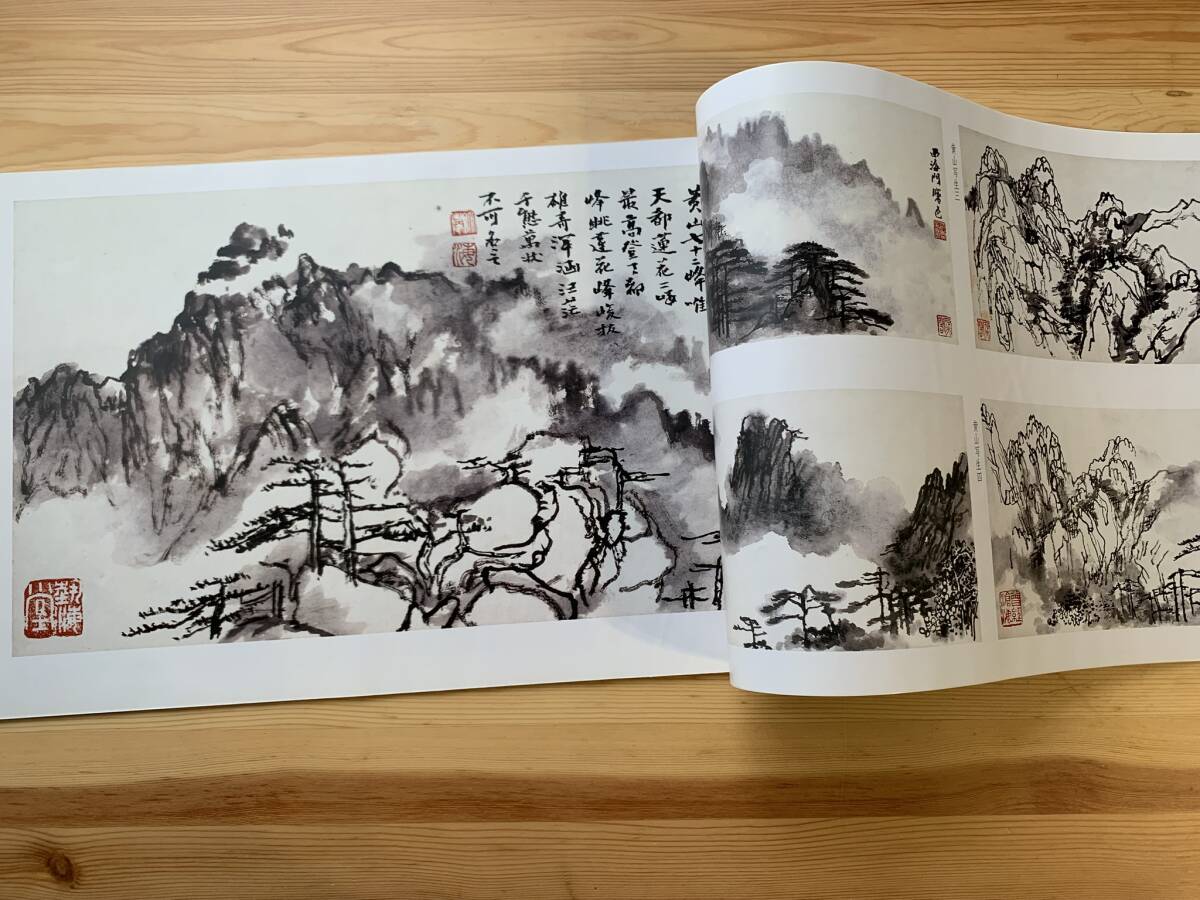 黄山七十二峰唯
天都蓮花二峰
最高登天都
峰眺蓮花峰峻拔
雄奇渾涵汪茫
千態萬狀
不可
西海門
黄山写生三
黄山写生四